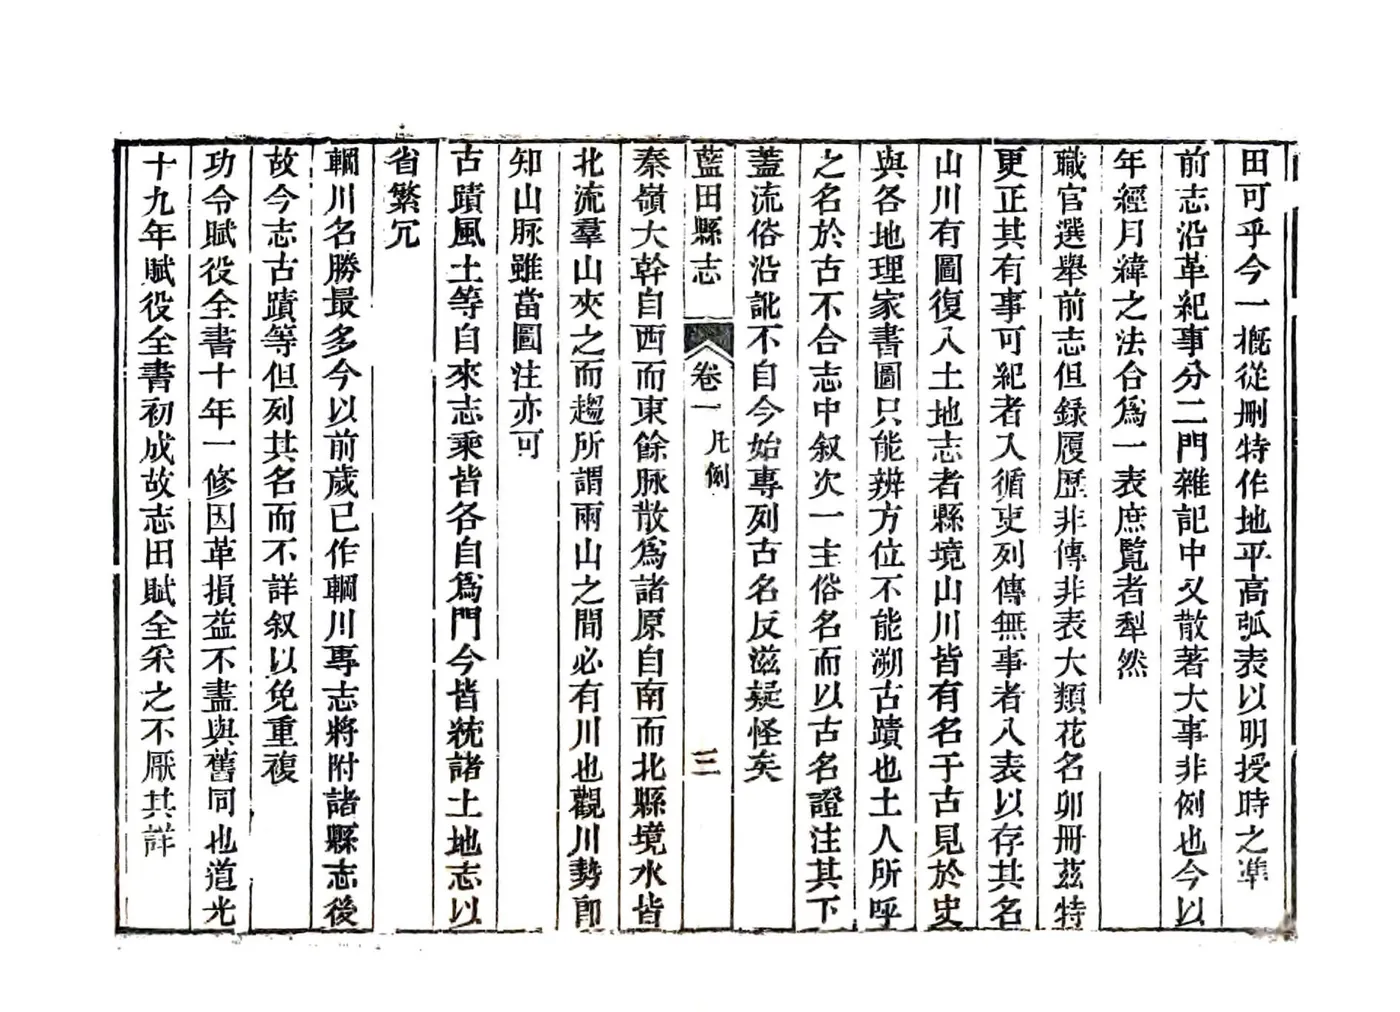 田可乎今一槪從刪特作地平高弧表以明授時之凖
前志沿革紀事分二門雜記中又散著大事非例也今以
年經月緯之法合爲一表庶覽者犁然
職官選舉前志但錄履歷非傳非表大類花名卯冊茲特
更正其有事可紀者入循吏列傳無事者入表以存其名
山川有圖復入土地志者縣境山川皆有名于古見於史
與各地理家書圖只能辨方位不能溯古蹟也土人所呼
之名於古不合志中叙次一主俗名而以古名證注其下
蓋流俗沿訛不自今始專列古名反滋疑怪矣
藍田縣志 卷一 凡例 三
秦嶺大幹自西而東餘脉散爲諸原自南而北縣境水皆
北流羣山夾之而趨所謂兩山之間必有川也觀川勢卽
知山脉雖當圖注亦可
古蹟風土等自來志乘皆各自爲門今皆統諸土地志以
省繁冗
輞川名勝最多今以前歲已作輞川專志將附諸縣志後
故今志古蹟等但列其名而不詳叙以免重複
功令賦役全書十年一修因革損益不盡與舊同也道光
十九年賦役全書初成故志田賦全采之不厭其詳